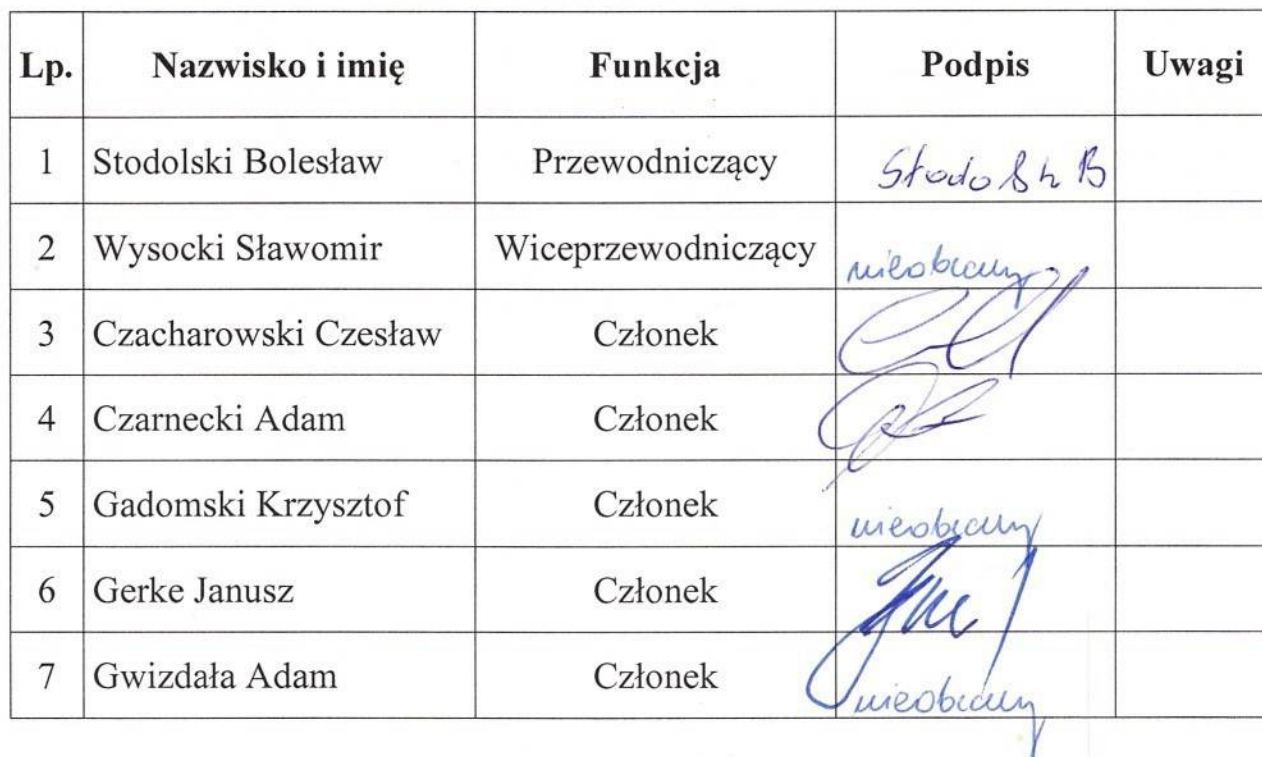 Lp. Nazwisko i imię Funkcja Podpis Uwagi
1 Stodolski Bolesław Przewodniczący
2 Wysocki Sławomir Wiceprzewodniczący nieobecny
3 Czacharowski Czesław Członek
4 Czarnecki Adam Członek
5 Gadomski Krzysztof Członek nieobecny
6 Gerke Janusz Członek
7 Gwizdała Adam Członek nieobecny